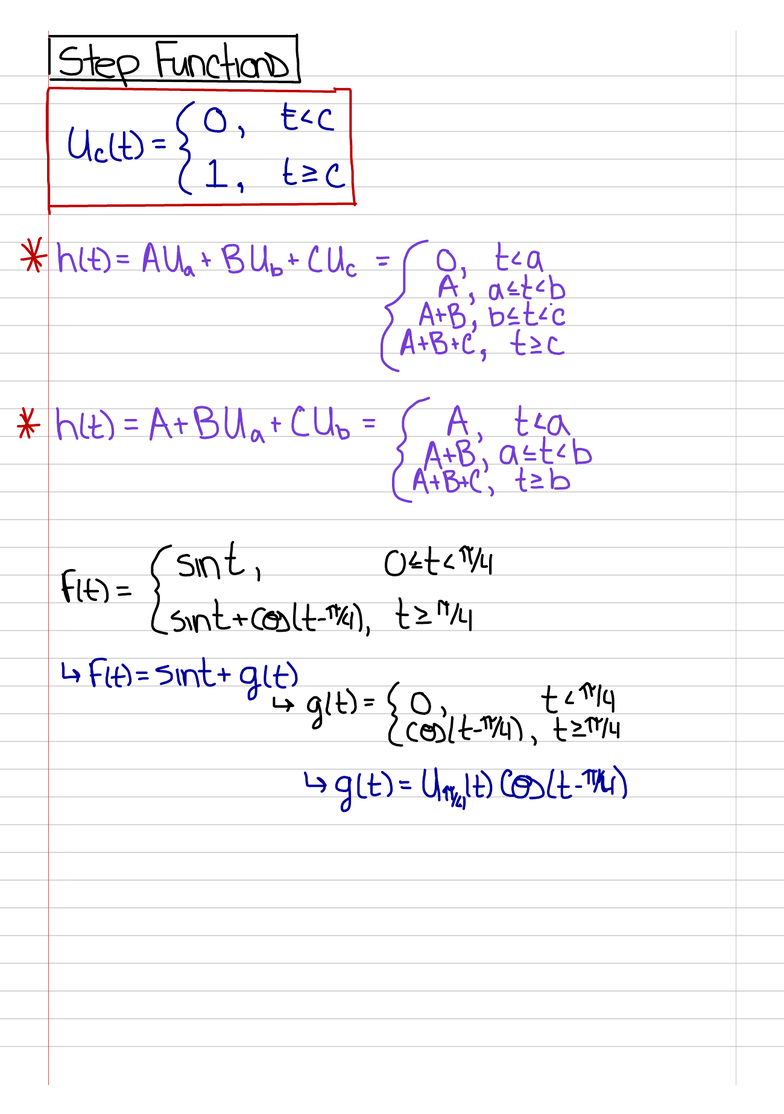 Step Functions
u_c(t) = { 0, t<c
1, t≥c
* h(t) = Au_a + Bu_b + Cu_c = { 0, t<a
A, a≤t<b
A+B, b≤t<c
A+B+C, t≥c
* h(t) = A+Bu_a + Cu_b = { A, t<a
A+B, a≤t<b
A+B+C, t≥b
f(t) = { sint, 0≤t<π/4
sint+cos(t-π/4), t≥π/4
↳ f(t) = sint + g(t)
↳ g(t) = { 0, t<π/4
cos(t-π/4), t≥π/4
↳ g(t) = u_π/4(t) cos(t-π/4)